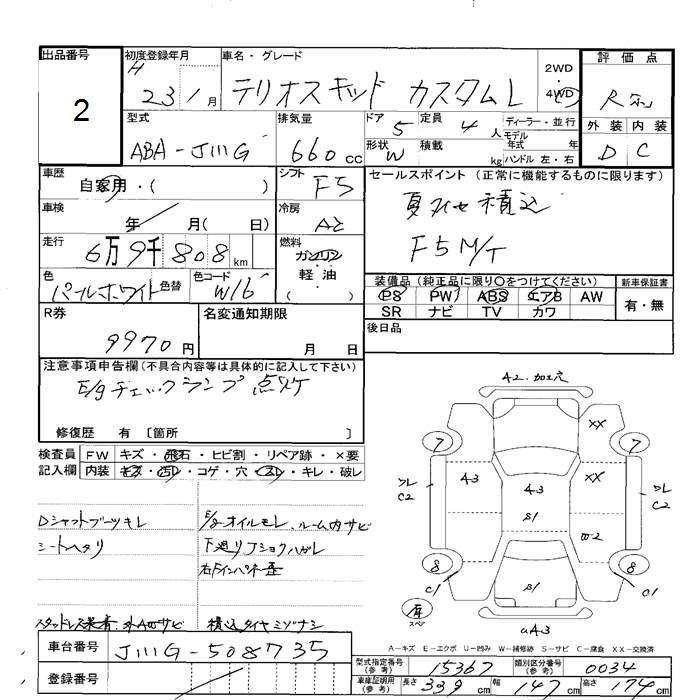 出品番号
2
初度登録年月
H
23 / 1 月
車名・グレード
テリオスキッド カスタムL
2WD
・
4WD
評価点
R
外装 内装
D C
型式
ABA-J111G
排気量
660 cc
ドア 5
定員 4 人
ディーラー・並行
モデル
年式 年
形状 W
積載 kg
ハンドル 左・右
車歴
自家用・( )
シフト F5
セールスポイント (正常に機能するものに限ります)
夏タイヤ積込
F5 M/T
車検
年 月( 日)
冷房
AC
走行
6万9千808 km
燃料
ガソリン
軽油
( )
色
パールホワイト 色替
色コード
W16
装備品 (純正品に限り○をつけてください)
PS PW ABS エアB AW
SR ナビ TV カワ
新車保証書
有・無
R券
9970 円
名変通知期限
月 日
後日品
注意事項申告欄 (不具合内容等は具体的に記入して下さい)
E/gチェックランプ 点灯
修復歴 有 〔箇所 〕
検査員 FW キズ・飛石・ヒビ割・リペア跡・×要
記入欄 内装 キズ・汚レ・コゲ・穴・スレ・キレ・破レ
Dシャフトブーツキレ
シートヘタリ
E/gオイルモレ、ルーム内サビ
下廻りJショクハガレ
右Fインパネ歪
スタッドレス装着、外AWサビ
積込タイヤミゾナシ
A2.加工穴
XX
7
7
A3
A3
XX
クレ
C2
クレ
C2
S1
W2
8
8
C1
C1
S1
スペア
UA3
A-キズ E-エクボ U-凹み W-補修跡 S-サビ C-腐食 XX-交換済
車台番号
J111G-508735
登録番号
型式指定番号
(参考)
15367
類別区分番号
(参考)
0034
車庫証明用
(参考)
長さ 339 cm
幅 147 cm
高さ 174 cm